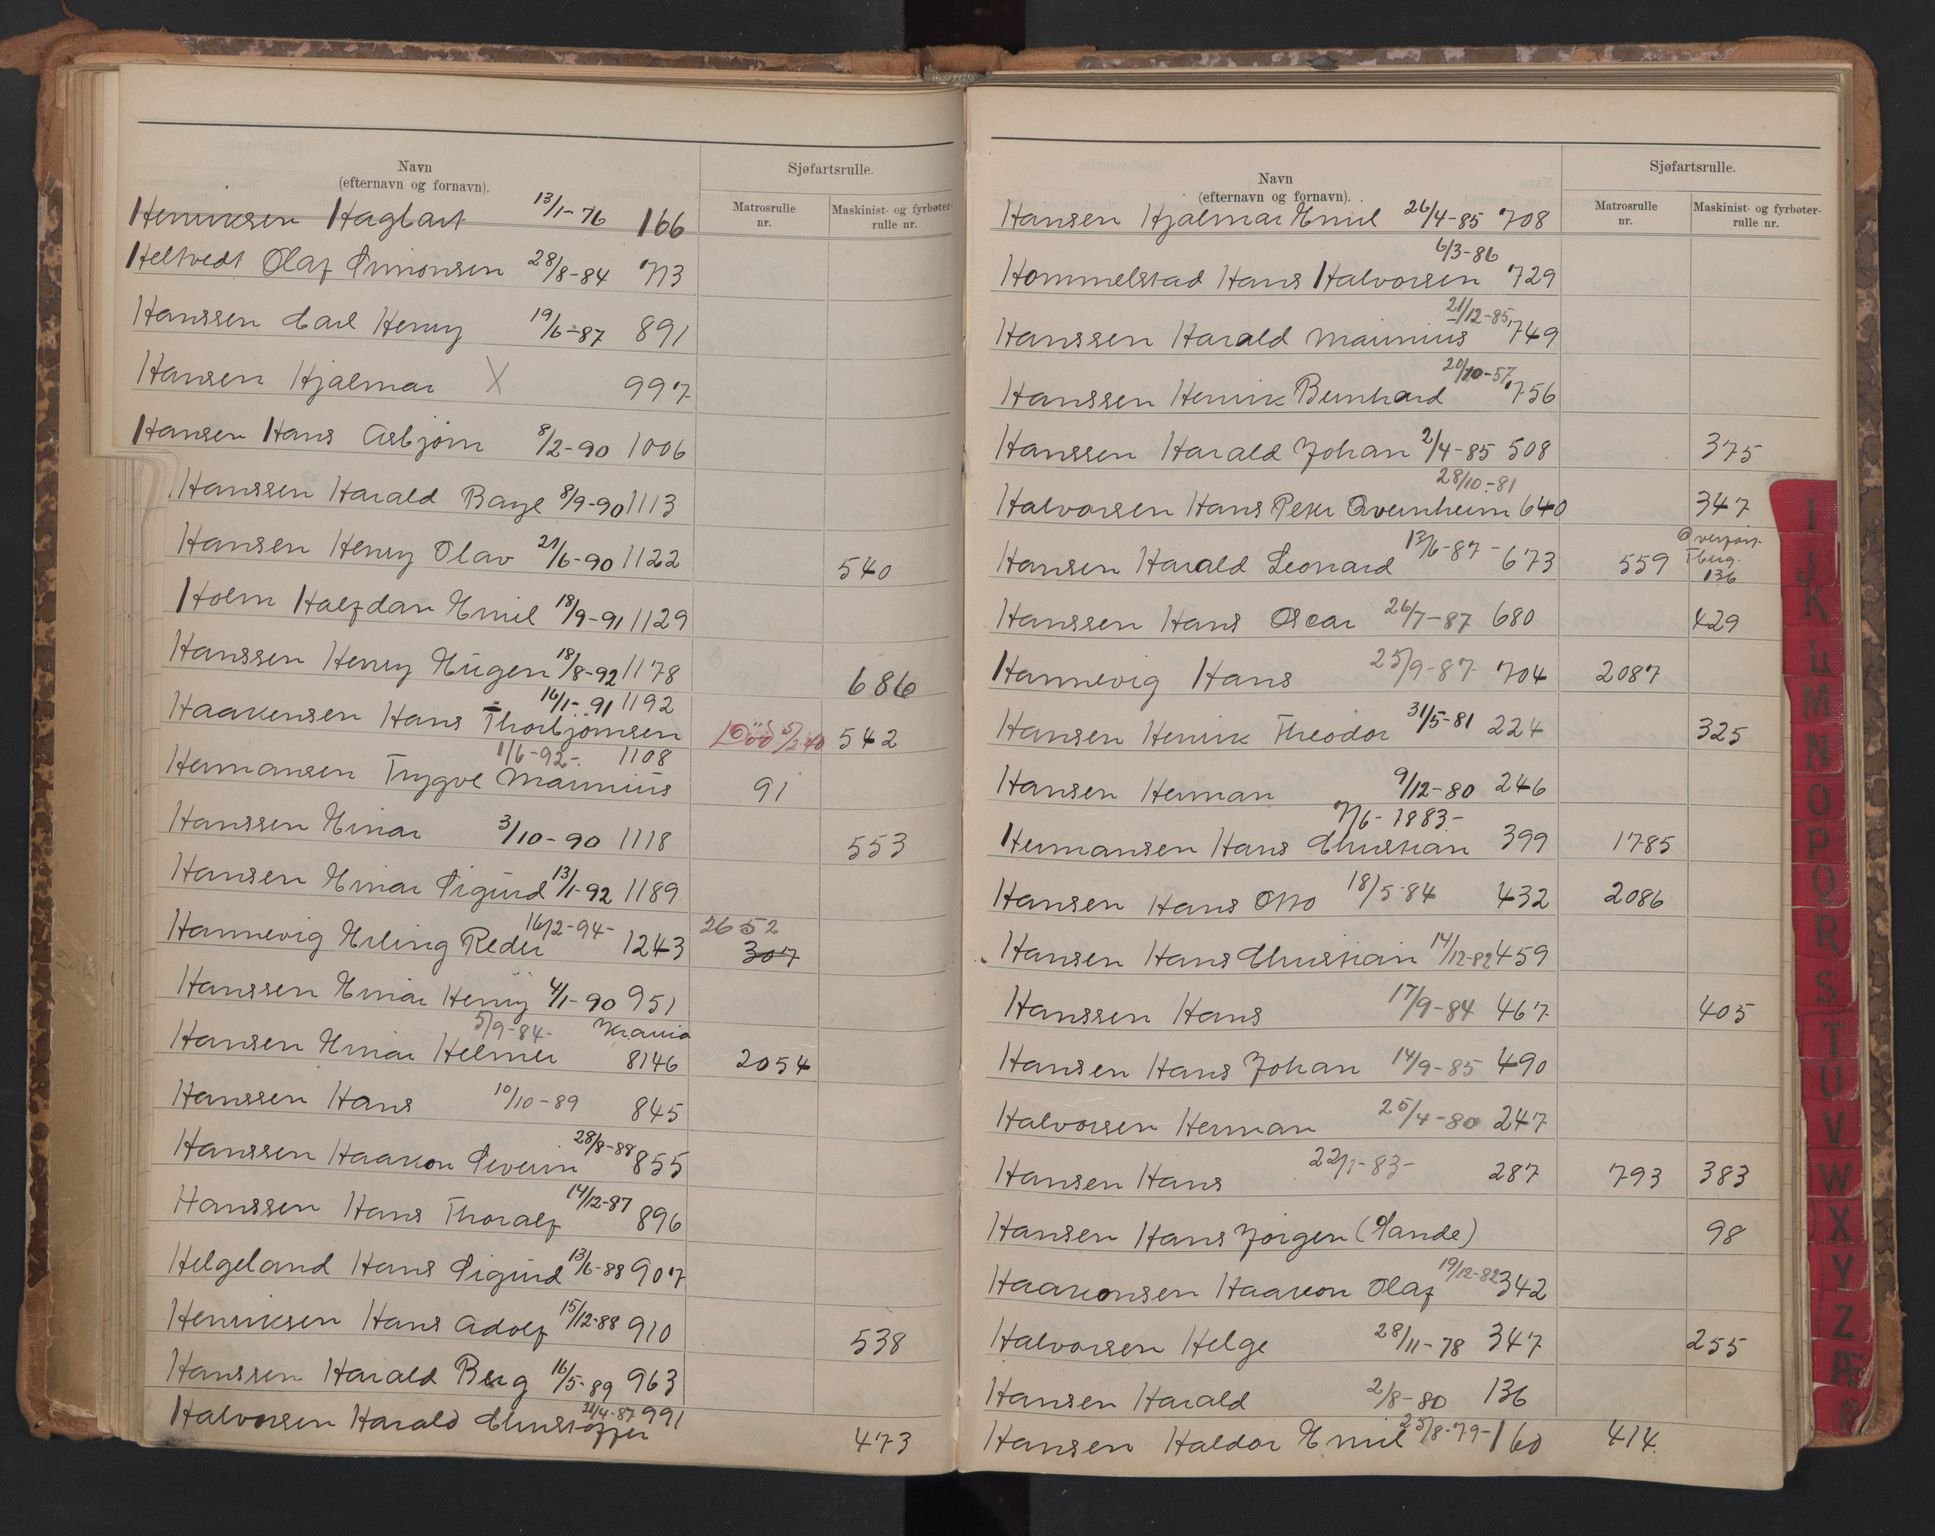 Navn
(efternavn og fornavn).
Sjøfartsrulle.
Matrosrulle nr.
Maskinist- og fyrbøter-rulle nr.
Henriksen Hagbart 13/1-76 166
Heltvedt Olaf Simonsen 28/8-84 713
Hanssen Carl Henry 19/6-87 891
Hansen Hjalmar X 997
Hansen Hans Asbjørn 8/2-90 1006
Hanssen Harald Bayl 8/9-90 1113
Hansen Henry Olav 21/6-90 1122 540
Holm Halfdan Emil 18/9-91 1129
Hanssen Henry Eugen 18/8-92 1178 686
Haakensen Hans Thorbjørnsen 16/1-91 1192 Död 5/2 40 542
Hermansen Trygve Marinius 1/6-92- 1108 91
Hanssen Einar 3/10-90 1118 553
Hansen Einar Sigurd 13/1-92 1189
Hannevig Erling Reder 16/2-94- 1243 2652 307
Hanssen Einar Henry 4/1-90 951
Hansen Einar Helmer 5/9-84- Krania 8146 2054
Hanssen Hans 10/10-89 845
Hanssen Haakon Severin 28/8-88 855
Hanssen Hans Thoralf 14/12-87 896
Helgeland Hans Sigurd 13/6-88 907
Henriksen Hans Adolf 15/12-88 910 538
Hanssen Harald Berg 16/5-89 963
Halvorsen Harald Christoffer 22/4-87 991 473
Navn
(efternavn og fornavn).
Sjøfartsrulle.
Matrosrulle nr.
Maskinist- og fyrbøter-rulle nr.
Hansen Hjalmar Emil 26/4-85 708
Hommelstad Hans Halvorsen 6/3-86 729
Hanssen Harald Marinius 21/12-85 749
Hanssen Henrik Bernhard 20/10-57 756
Hanssen Harald Johan 2/4-85 508 375
Halvorsen Hans Peter Qvernheim 28/10-81 640 347
Hansen Harald Leonard 13/6-87- 673 559 Overført Tberg. 136
Hanssen Hans Oscar 26/7-87 680 429
Hannevig Hans 25/9-87 704 2087
Hansen Henrik Theodor 31/5-81 224 325
Hansen Herman 9/12-80 246
Hermansen Hans Christian 7/6-1883- 399 1785
Hansen Hans Otto 18/5-84 432 2086
Hansen Hans Christian 14/12-82 459
Hanssen Hans 17/9-84 467 405
Hansen Hans Johan 14/9-85 490
Halvorsen Herman 25/4-80 247
Hansen Hans 22/1-83- 287 793 383
Hansen Hans Jørgen (Sande) 98
Haakonsen Haakon Olaf 19/12-82 342
Halvorsen Helge 28/11-78 347 255
Hansen Harald 2/8-80 136
Hansen Haldor Emil 25/8-79- 160 414
I
J
K
L
M
N
O
P
Q
R
S
T
U
V
W
X
Y
Z
Æ
Ø